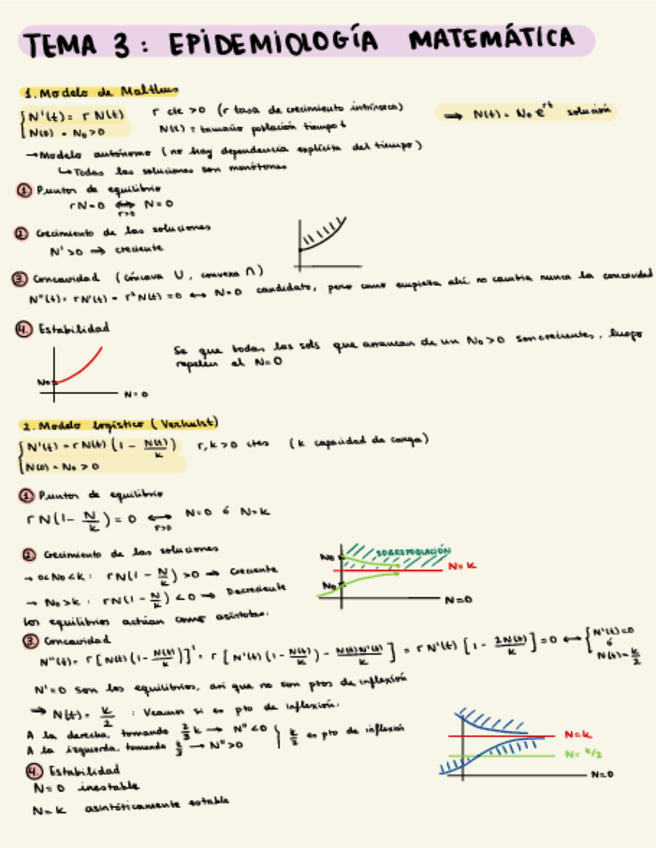 TEMA 3: EPIDEMIOLOGÍA MATEMÁTICA
1. Modelo de Malthus
N'(t) = r N(t) r cte > 0 (r tasa de crecimiento intrínseca) → N(t) = N₀ e^{rt} solución
N(0) = N₀ > 0 N(t) = tamaño población tiempo t
→ Modelo autónomo (no hay dependencia explícita del tiempo)
↳ Todas las soluciones son monótonas
① Puntos de equilibrio
rN = 0 ⟺ N = 0
r>0
② Crecimiento de las soluciones
N' > 0 → creciente
③ Concavidad (cóncava ∪, convexa ∩)
N''(t) = rN'(t) = r²N(t) = 0 ⟺ N = 0 candidato, pero como empieza ahí no cambia nunca la concavidad
④ Estabilidad
Se que todas las sols que arrancan de un N₀ > 0 son crecientes, luego
repelen el N = 0
N₀
N = 0
2. Modelo logístico (Verhulst)
N'(t) = r N(t) (1 - N(t)/k) r, k > 0 ctes (k capacidad de carga)
N(0) = N₀ > 0
① Puntos de equilibrio
r N (1 - N/k) = 0 ⟺ N = 0 ó N = k
r>0
② Crecimiento de las soluciones
→ 0 < N₀ < k : rN(1 - N/k) > 0 → Creciente
→ N₀ > k : rN(1 - N/k) < 0 → Decreciente
los equilibrios actúan como asíntotas.
N₀
SOBREPOBLACIÓN
N = k
N₀
N = 0
③ Concavidad
N''(t) = r [N(t) (1 - N(t)/k)]' = r [N'(t) (1 - N(t)/k) - N(t)N'(t)/k] = r N'(t) [1 - 2N(t)/k] = 0 ⟺ { N'(t) = 0 ó N(t) = k/2
N' = 0 son los equilibrios, así que no son ptos de inflexión
→ N(t) = k/2 : Veamos si es pto de inflexión:
A la derecha, tomando 2/3 k → N'' < 0
A la izquierda, tomando k/3 → N'' > 0 } k/2 es pto de inflexión
N = k
N = k/2
N = 0
④ Estabilidad
N = 0 inestable
N = k asintóticamente estable